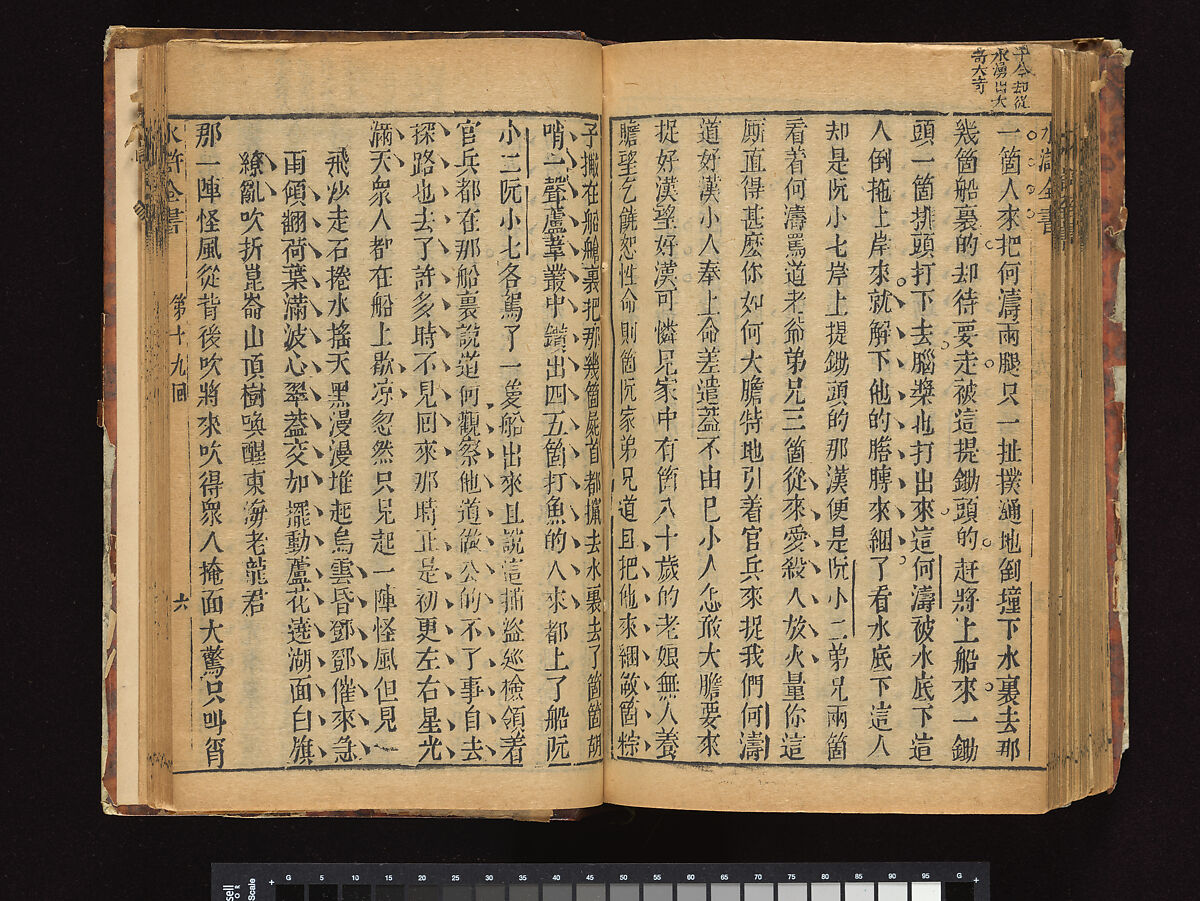 平令却從
水湧出大
奇大奇
水滸全書
一箇人來把何濤兩腿只一扯撲通地倒撞下水裏去那
幾箇船裏的却待要走被這提鋤頭的赶將上船來一鋤
頭一箇排頭打下去腦槳也打出來這何濤被水底下這
人倒拖上岸來就解下他的膳膊來綑了看水底下這人
却是阮小七岸上提鋤頭的那漢便是阮小二弟兄兩箇
看着何濤罵道老爺弟兄三箇從來愛殺人放火量你這
厮直得甚麽你如何大膽特地引着官兵來捉我們何濤
道好漢小人奉上命差遣葢不由巳小人怎敢大膽要來
捉好漢望好漢可憐見家中有箇八十歲的老娘無人養
膽望乞饒恕性命則箇阮家弟兄道且把他來綑做箇粽
子撇在船艙裏把那幾箇屍首都攛去水裏去了箇箇胡
哨一聲蘆葦叢中鑽出四五箇打魚的人來都上了船阮
小二阮小七各駕了一隻船出來且說這捕盜巡檢領着
官兵都在那船裏說道何觀察他道做公的不了事自去
探路也去了許多時不見回來那時正是初更左右星光
滿天衆人都在船上歇凉忽然只見起一陣怪風但見
飛沙走石捲水搖天黑漫漫堆起烏雲昏鄧鄧催來急
雨傾翻荷葉滿波心翠葢交加擺動蘆花遶湖面白旗
繚亂吹折崑崙山頂樹喚醒東海老龍君
那一陣怪風從背後吹將來吹得衆人掩面大驚只叫得
水滸全書 第十九回 六